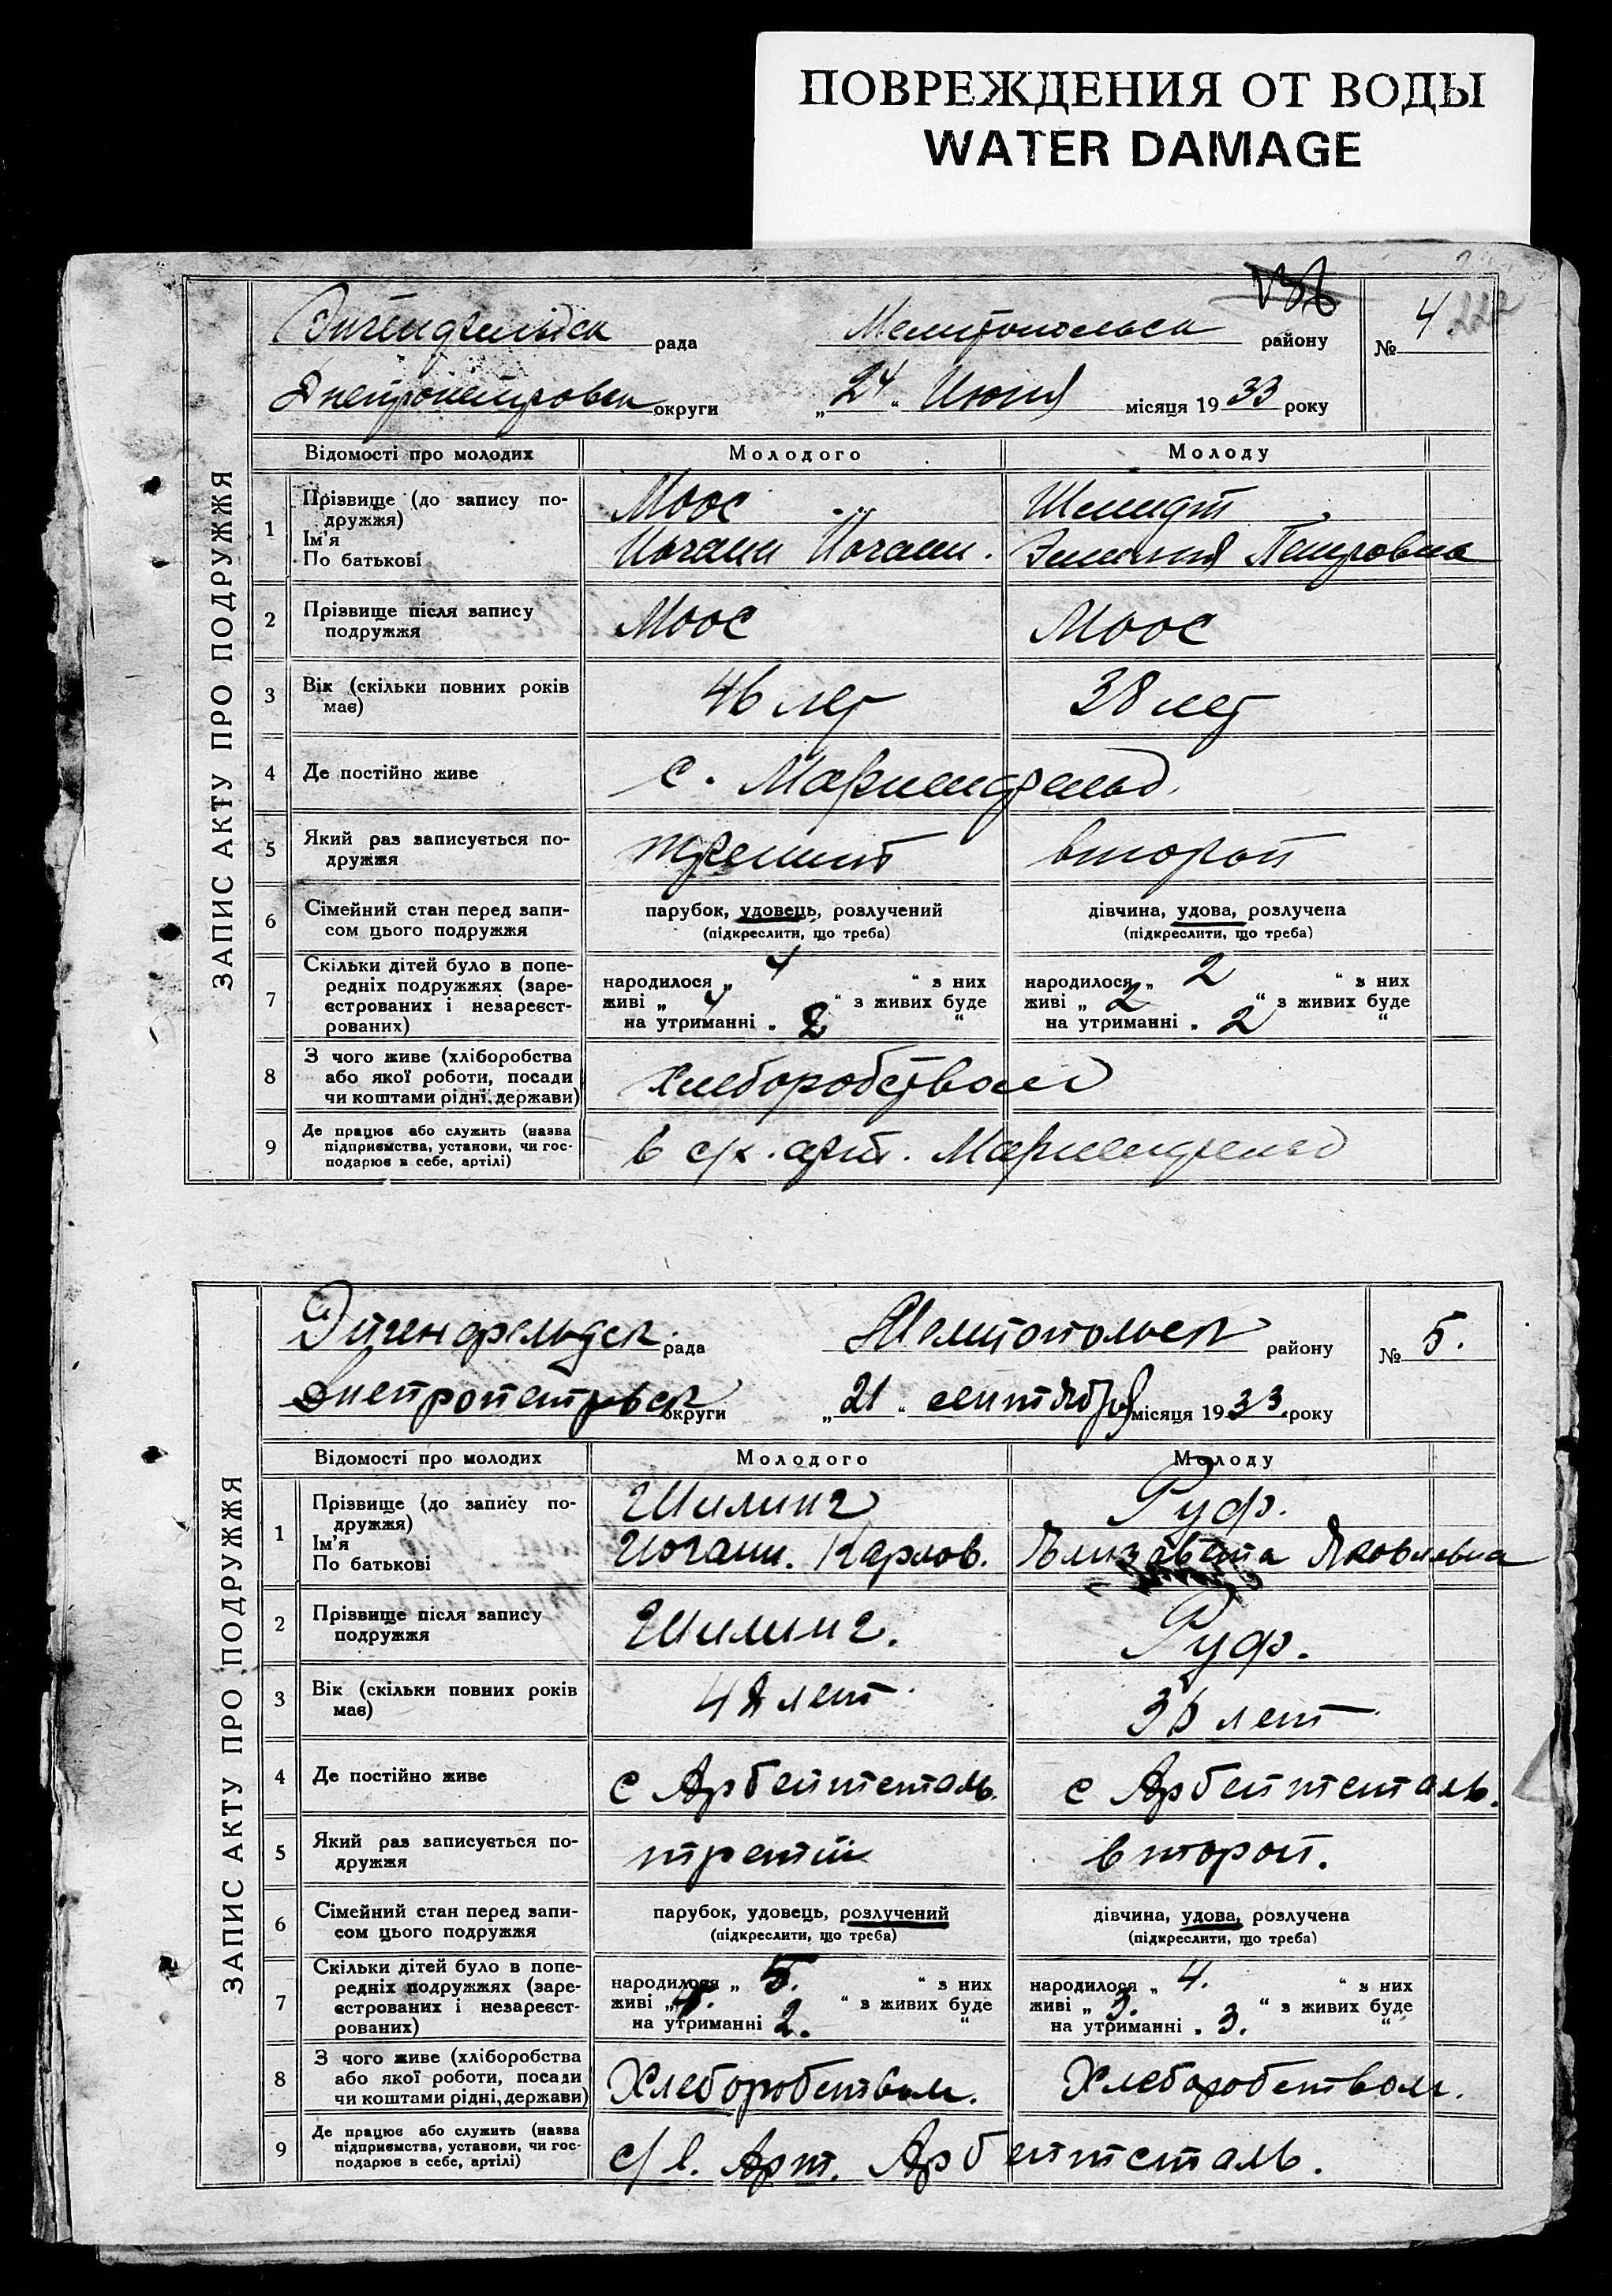 ПОВРЕЖДЕНИЯ ОТ ВОДЫ
WATER DAMAGE
ЗАПИС АКТУ ПРО ПОДРУЖЖЯ
Эйгенфельдск рада Мелитопольск району № 4
Днепропетровск округи „ 24 “ Июня місяця 19 33 року
Відомості про молодих Молодого Молоду
1 Прізвище (до запису по-
дружжя)
Ім'я
По батькові
Моос Шмидт
Иоганн Иоганн. Эмилия Петровна
2 Прізвище після запису
подружжя
Моос Моос
3 Вік (скільки повних років
має)
46 лет 38 лет
4 Де постійно живе с. Мариенфельд.
5 Який раз записується по-
дружжя
третий второй
6 Сімейний стан перед запи-
сом цього подружжя
парубок, удовець, розлучений дівчина, удова, розлучена
(підкреслити, що треба) (підкреслити, що треба)
7 Скільки дітей було в попе-
редніх подружжях (заре-
єстрованих і незареєст-
рованих)
народилося „ 4 “ з них народилося „ 2 “ з них
живі „ 4 “ з живих буде живі „ 2 “ з живих буде
на утриманні „ 2 “ на утриманні „ 2 “
8 З чого живе (хліборобства
або якої роботи, посади
чи коштами рідні, держави)
хлеборобством
9 Де працює або служить (назва
підприємства, установи, чи гос-
подарює в себе, артілі)
в с/х. арт. Мариенфельд
ЗАПИС АКТУ ПРО ПОДРУЖЖЯ
Эйгенфельдск. рада Мелитопольск району № 5.
Днепропетровск округи „ 21 “ сентября місяця 19 33. року
Відомості про молодих Молодого Молоду
1 Прізвище (до запису по-
дружжя)
Ім'я
По батькові
Шилинг Руф.
Иоганн. Карлов. Елизавета Яковлевна
2 Прізвище після запису
подружжя
Шилинг. Руф.
3 Вік (скільки повних років
має)
лет лет
4 Де постійно живе с Арбейтсталь. с Арбейтсталь.
5 Який раз записується по-
дружжя
третий второй.
6 Сімейний стан перед запи-
сом цього подружжя
парубок, удовець, розлучений дівчина, удова, розлучена
(підкреслити, що треба) (підкреслити, що треба)
7 Скільки дітей було в попе-
редніх подружжях (заре-
єстрованих і незареєст-
рованих)
народилося „ 5. “ з них народилося „ 4. “ з них
живі „ “ з живих буде живі „ 3. “ з живих буде
на утриманні 2. “ на утриманні „ 3. “
8 З чого живе (хліборобства
або якої роботи, посади
чи коштами рідні, держави)
Хлеборобством. Хлеборобством.
9 Де працює або служить (назва
підприємства, установи, чи гос-
подарює в себе, артілі)
Арт. Арбейтсталь.